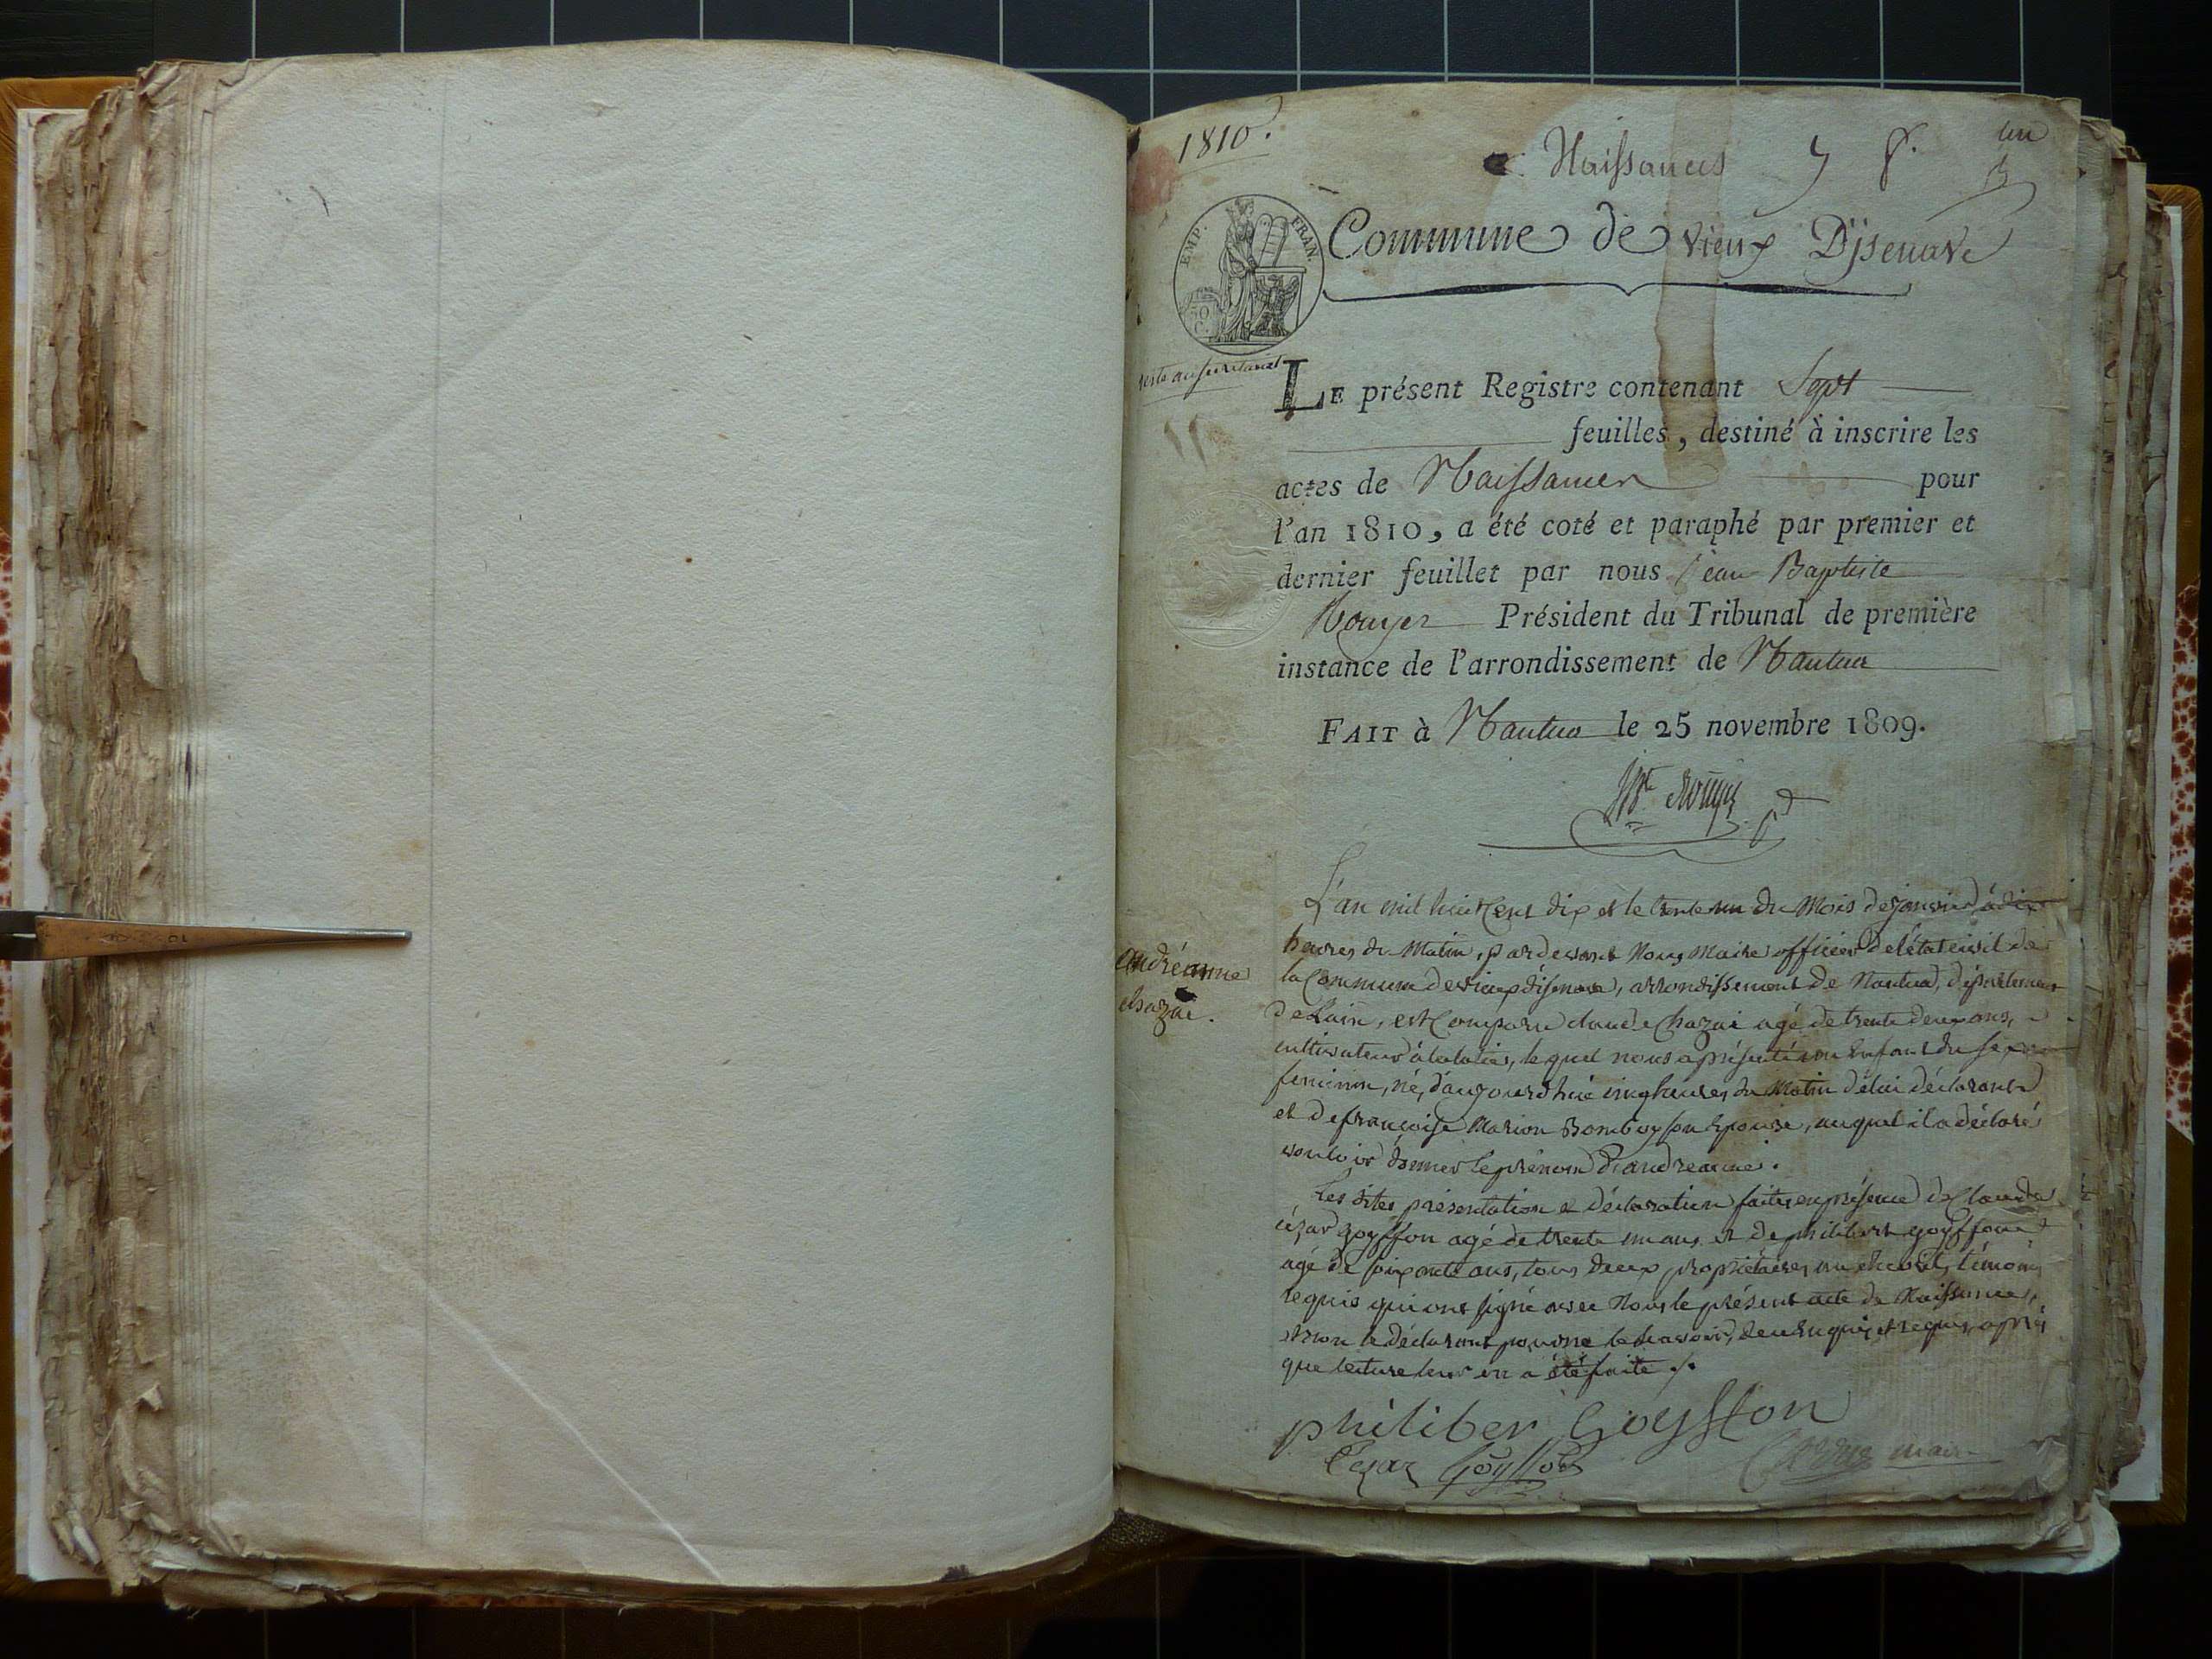 1810.
Naissances 7 f. un
Commune de vieux Dÿsenave
EMP. FRAN.
50 C.
reste au secretariat
LE présent Registre contenant Sept
feuilles, destiné à inscrire les
actes de Naissances pour
l'an 1810, a été coté et paraphé par premier et
dernier feuillet par nous Jean Baptiste
Rouyer Président du Tribunal de première
instance de l'arrondissement de Nantua
FAIT à Nantua le 25 novembre 1809.
JBte Rouyer
L'an mil huit Cent dix et le trente un du Mois de janvier à dix
heures du Matin, pardevant Nous Maire officier de l'état civil de
la Commune de vieux d'isenave, arrondissement de Nantua, département
andréanne
chazai.
de Lain, est Comparu claude Chazai agé de trente deux ans,
cultivateur à, lequel nous a présenté un Enfant du sexe
feminin, né, d'aujourd'hui cinq heures du Matin de lui déclarant
et de françoise Marion Bomboy son Epouse, auquel il a déclaré
vouloir donner le prénom d'andréanne.
Les dites présentation et déclaration faites en présence de Claude
cézar goyffon agé de trente un ans et de philibert goyffon
agé de soixante ans, tous deux propriétaires au, témoins
requis qui ont signé avec Nous le présent acte de Naissance,
et non le déclarant pour ne le savoir, de ce Enquis et requis, après
que lecture leur en a été faite ./.
philiber Goyffon
Cezar Goyffon
maire